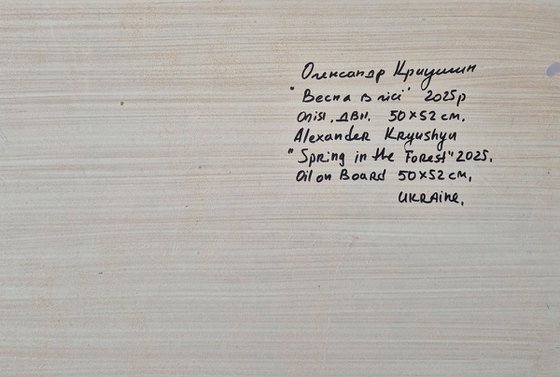 Олександр Криушин
"Весна в лісі" 2025р
Олія, ДВП. 50×52 см.
Alexander Kryushyn
"Spring in the Forest" 2025.
Oil on Board 50×52 см,
UKRAine.